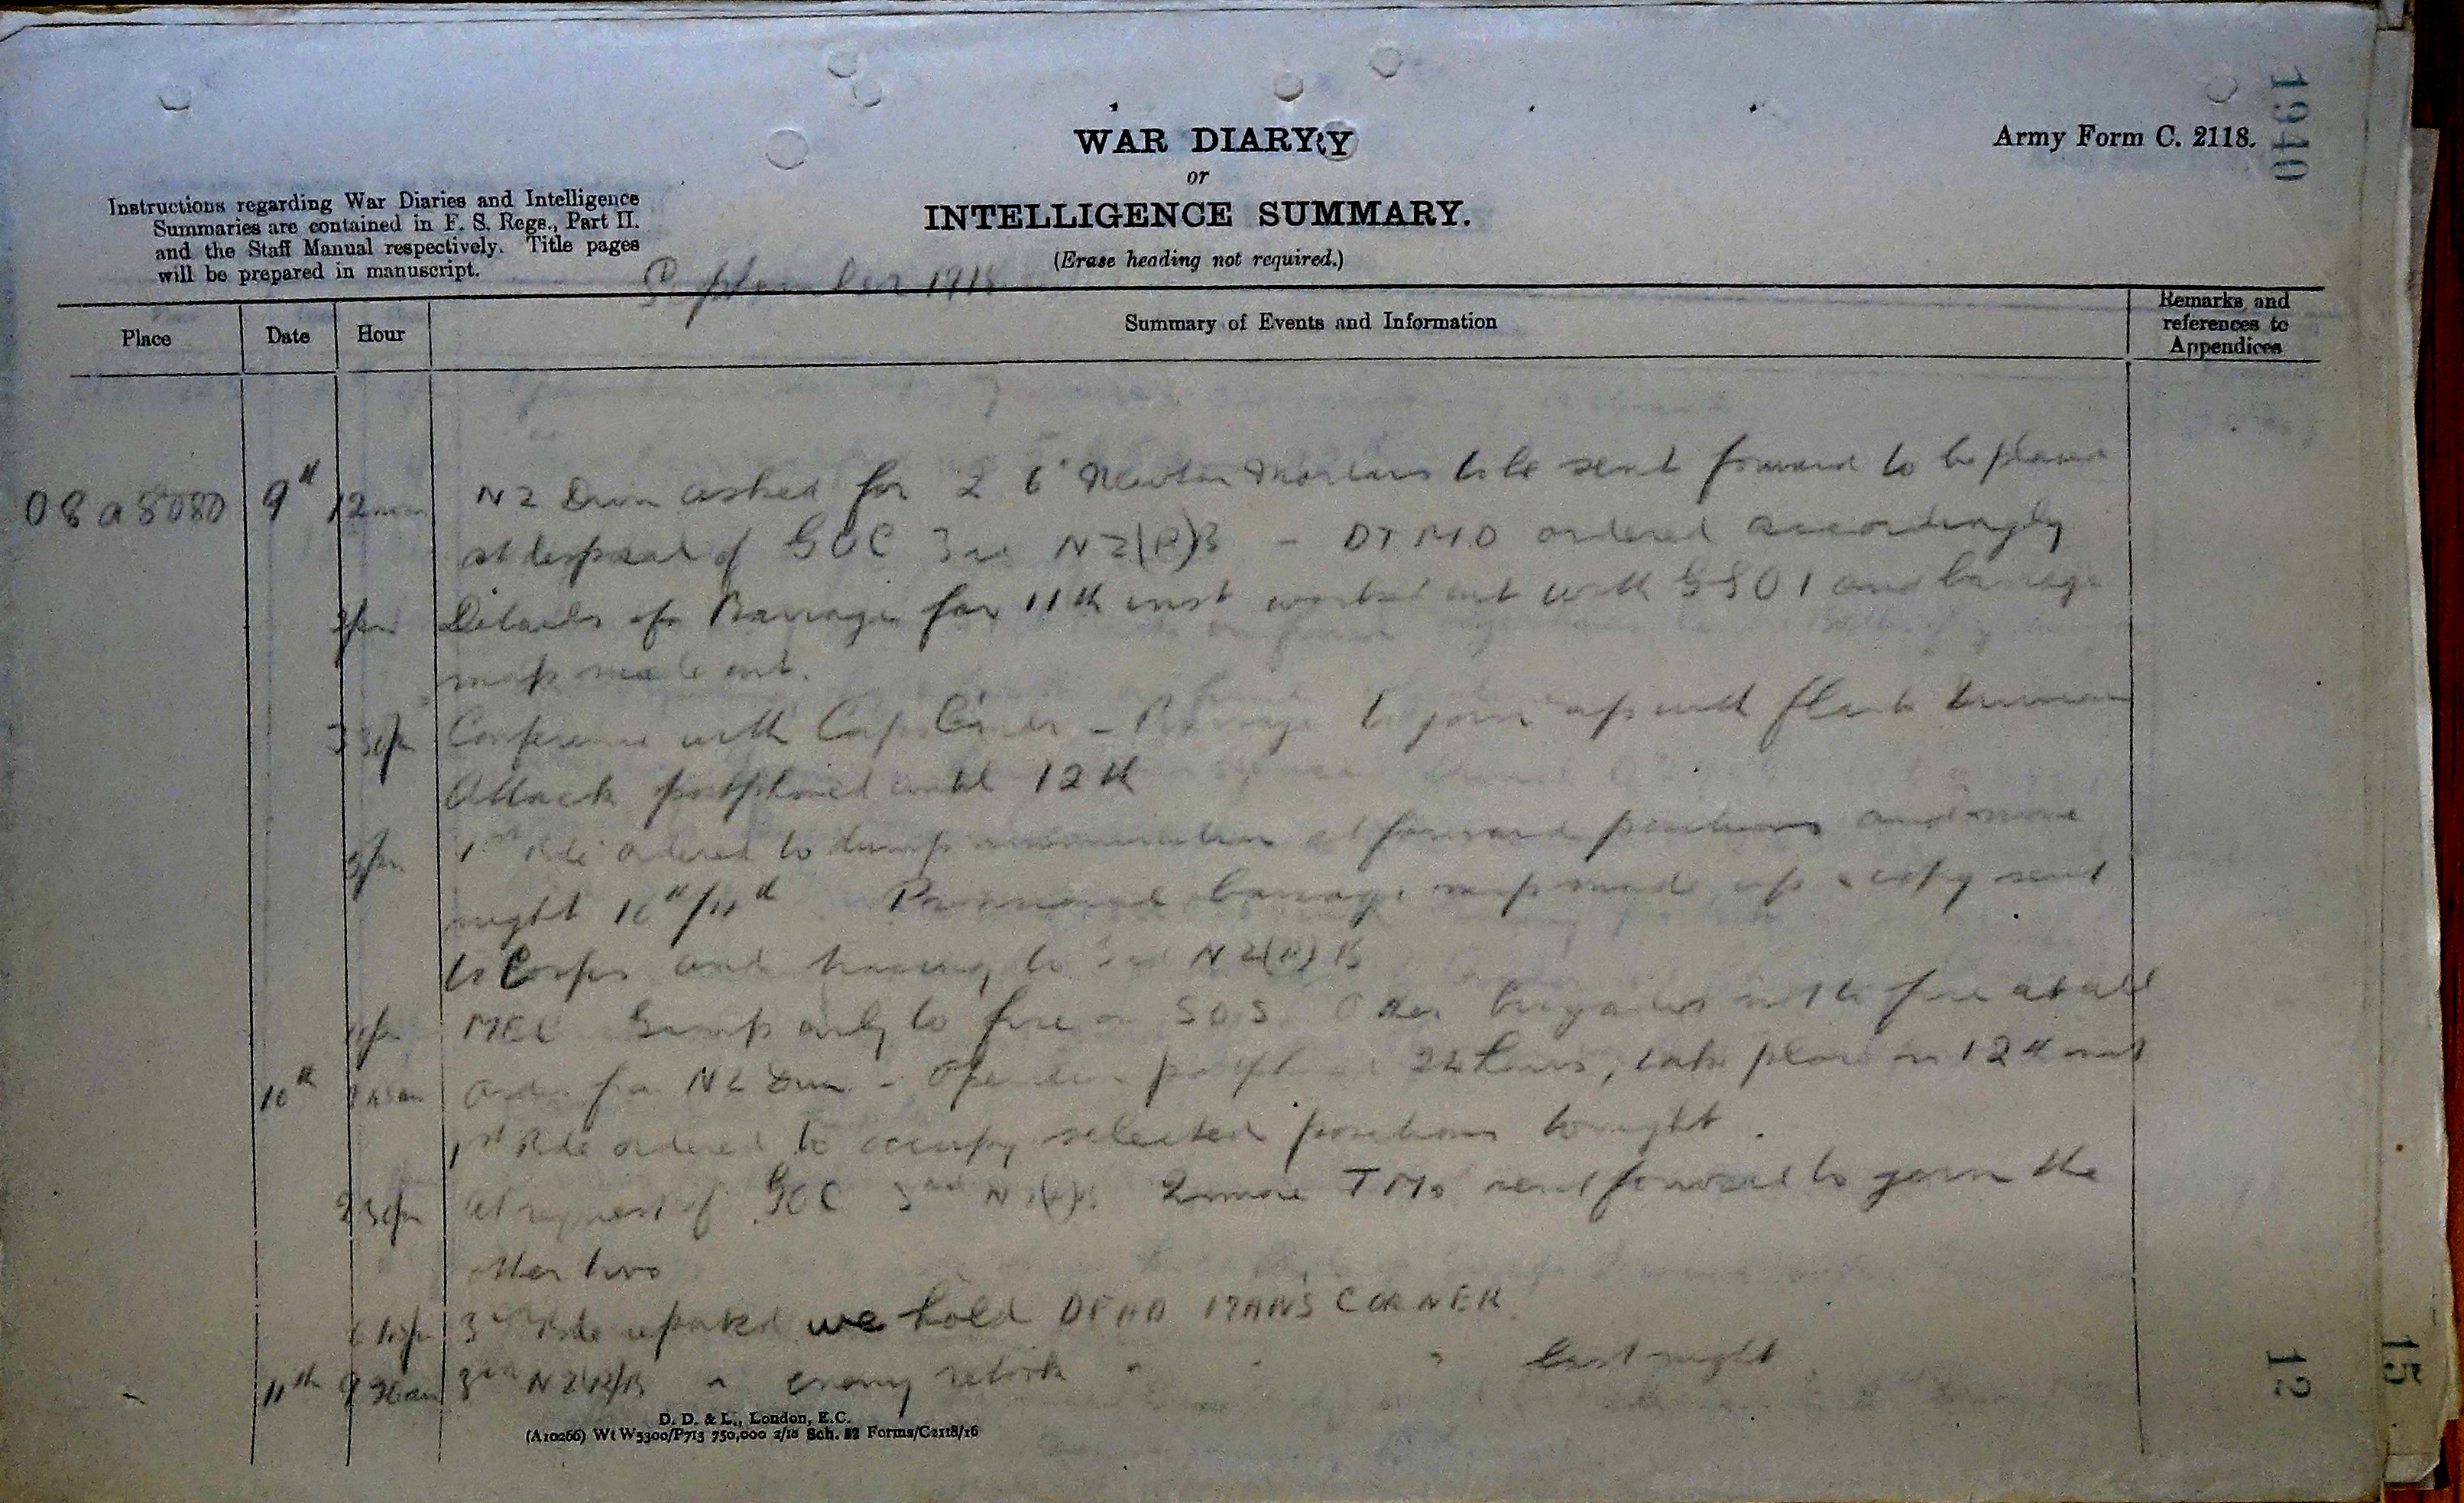 WAR DIARY
Army Form C. 2118.
or
INTELLIGENCE SUMMARY.
(Erase heading not required.)
Instructions regarding War Diaries and Intelligence
Summaries are contained in F. S. Regs., Part II.
and the Staff Manual respectively. Title pages
will be prepared in manuscript.
1940
September 1918
Place Date Hour Summary of Events and Information Remarks and
references to
Appendices
O8a8080 9th 12noon NZ Divn asked for 2 6" Newton Mortars to be sent forward to be placed
at disposal of GOC 3rd NZ(R)B - DTMO ordered accordingly
Details of Barrage for 11th inst worked out with GSO1 and barrage
map made out.
3 30pm Conference with Corps - Barrage to join up with flank
Attack postphoned until 12th
1st Bde ordered to dump ammunition at forward positions and move
night 10th/11th barrage map made up & copy sent
to Corps and tracing to 3rd NZ(R)B
Group only to fire on SOS. Other brigades not to fire at all
10th Order from NZ Divn - Operation 24 hours, take place on 12th inst
1st Bde ordered to occupy selected positions tonight.
2 30pm At request of GOC 3rd NZ(R)B 2 more TMs sent forward to join the
other two
3rd Bde reported we hold DEAD MAN'S CORNER
11th 9 30am 3rd NZ(R)B " enemy retook " " " last night
D. D. & L., London, E.C.
(A10266) Wt W5300/P713 750,000 2/18 Sch. 52 Forms/C2118/16
12
15